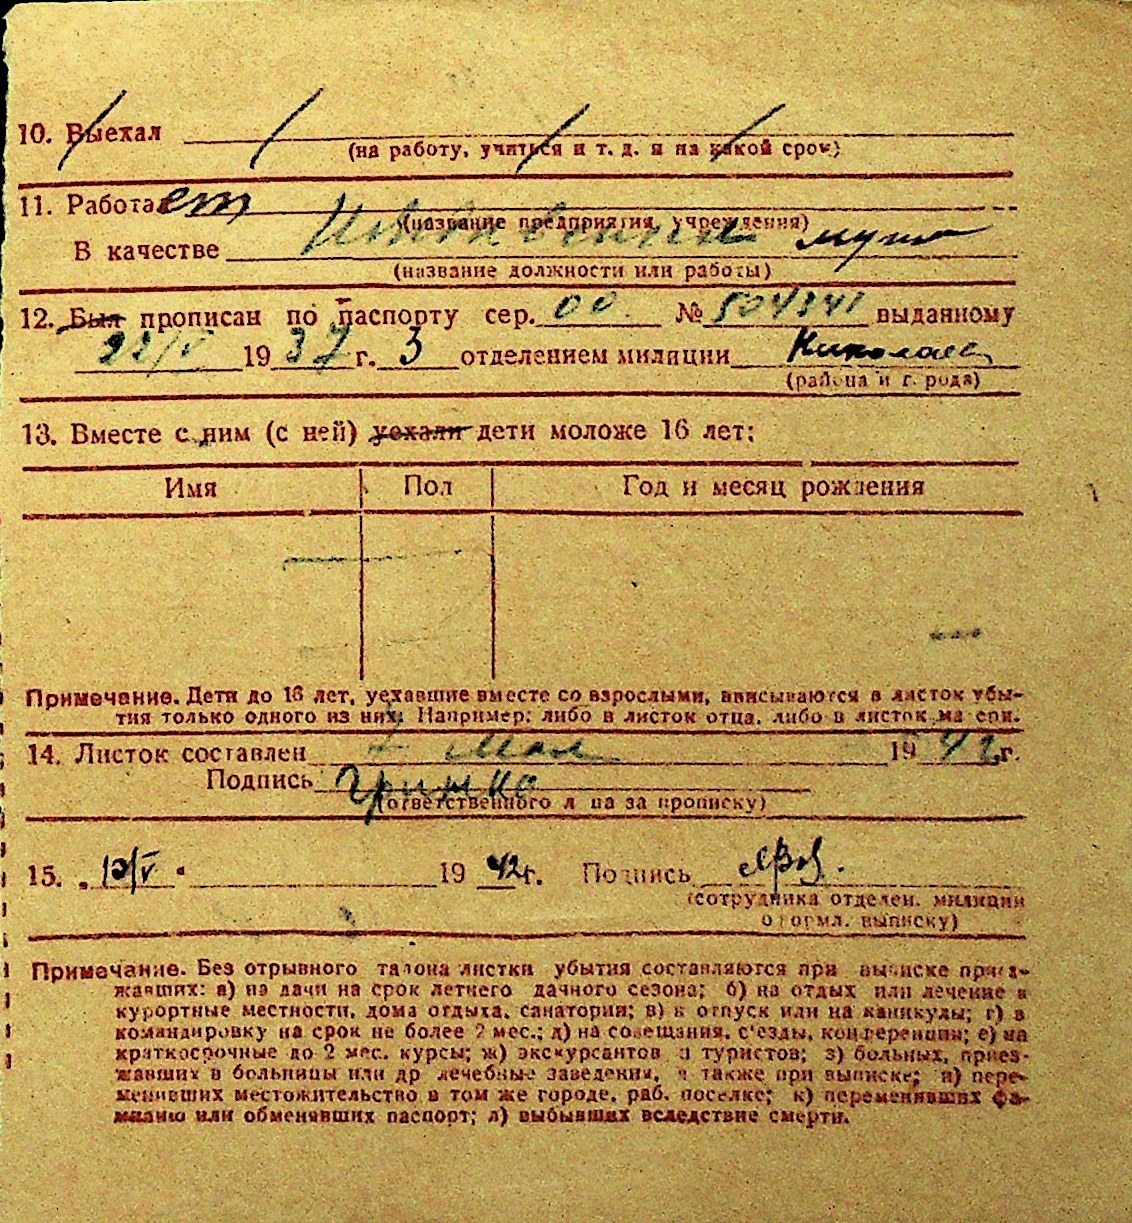 10. Выехал
(на работу, учиться и т. д. и на какой срок)
11. Работает
(название предприятия, учреждения)
В качестве
(название должности или работы)
12. Был прописан по паспорту сер. 00 № 504341 выданному
22/V 1937 г. 3 отделением милиции Николаев
(района и города)
13. Вместе с ним (с ней) уехали дети моложе 16 лет:
Имя Пол Год и месяц рождения
Примечание. Дети до 16 лет, уехавшие вместе со взрослыми, вписываются в листок убы-
тия только одного из них: Например: либо в листок отца, либо в листок матери.
14. Листок составлен 7 мая 1942 г.
Подпись Гринко
(ответственного лица за прописку)
15. „12/V" 1942 г. Подпись
(сотрудника отделен. милиции
оформл. выписку)
Примечание. Без отрывного талона листки убытия составляются при выписке приез-
жавших: а) на дачи на срок летнего дачного сезона; б) на отдых или лечение в
курортные местности, дома отдыха, санатории; в) в отпуск или на каникулы; г) в
командировку на срок не более 2 мес.; д) на совещания, с'езды, конференции; е) на
краткосрочные до 2 мес. курсы; ж) экскурсантов и туристов; з) больных, приез-
жавших в больницы или др лечебные заведения, а также при выписке; и) пере-
менивших местожительство в том же городе, раб. поселке; к) переменивших фа-
милию или обменявших паспорт; л) выбывших вследствие смерти.